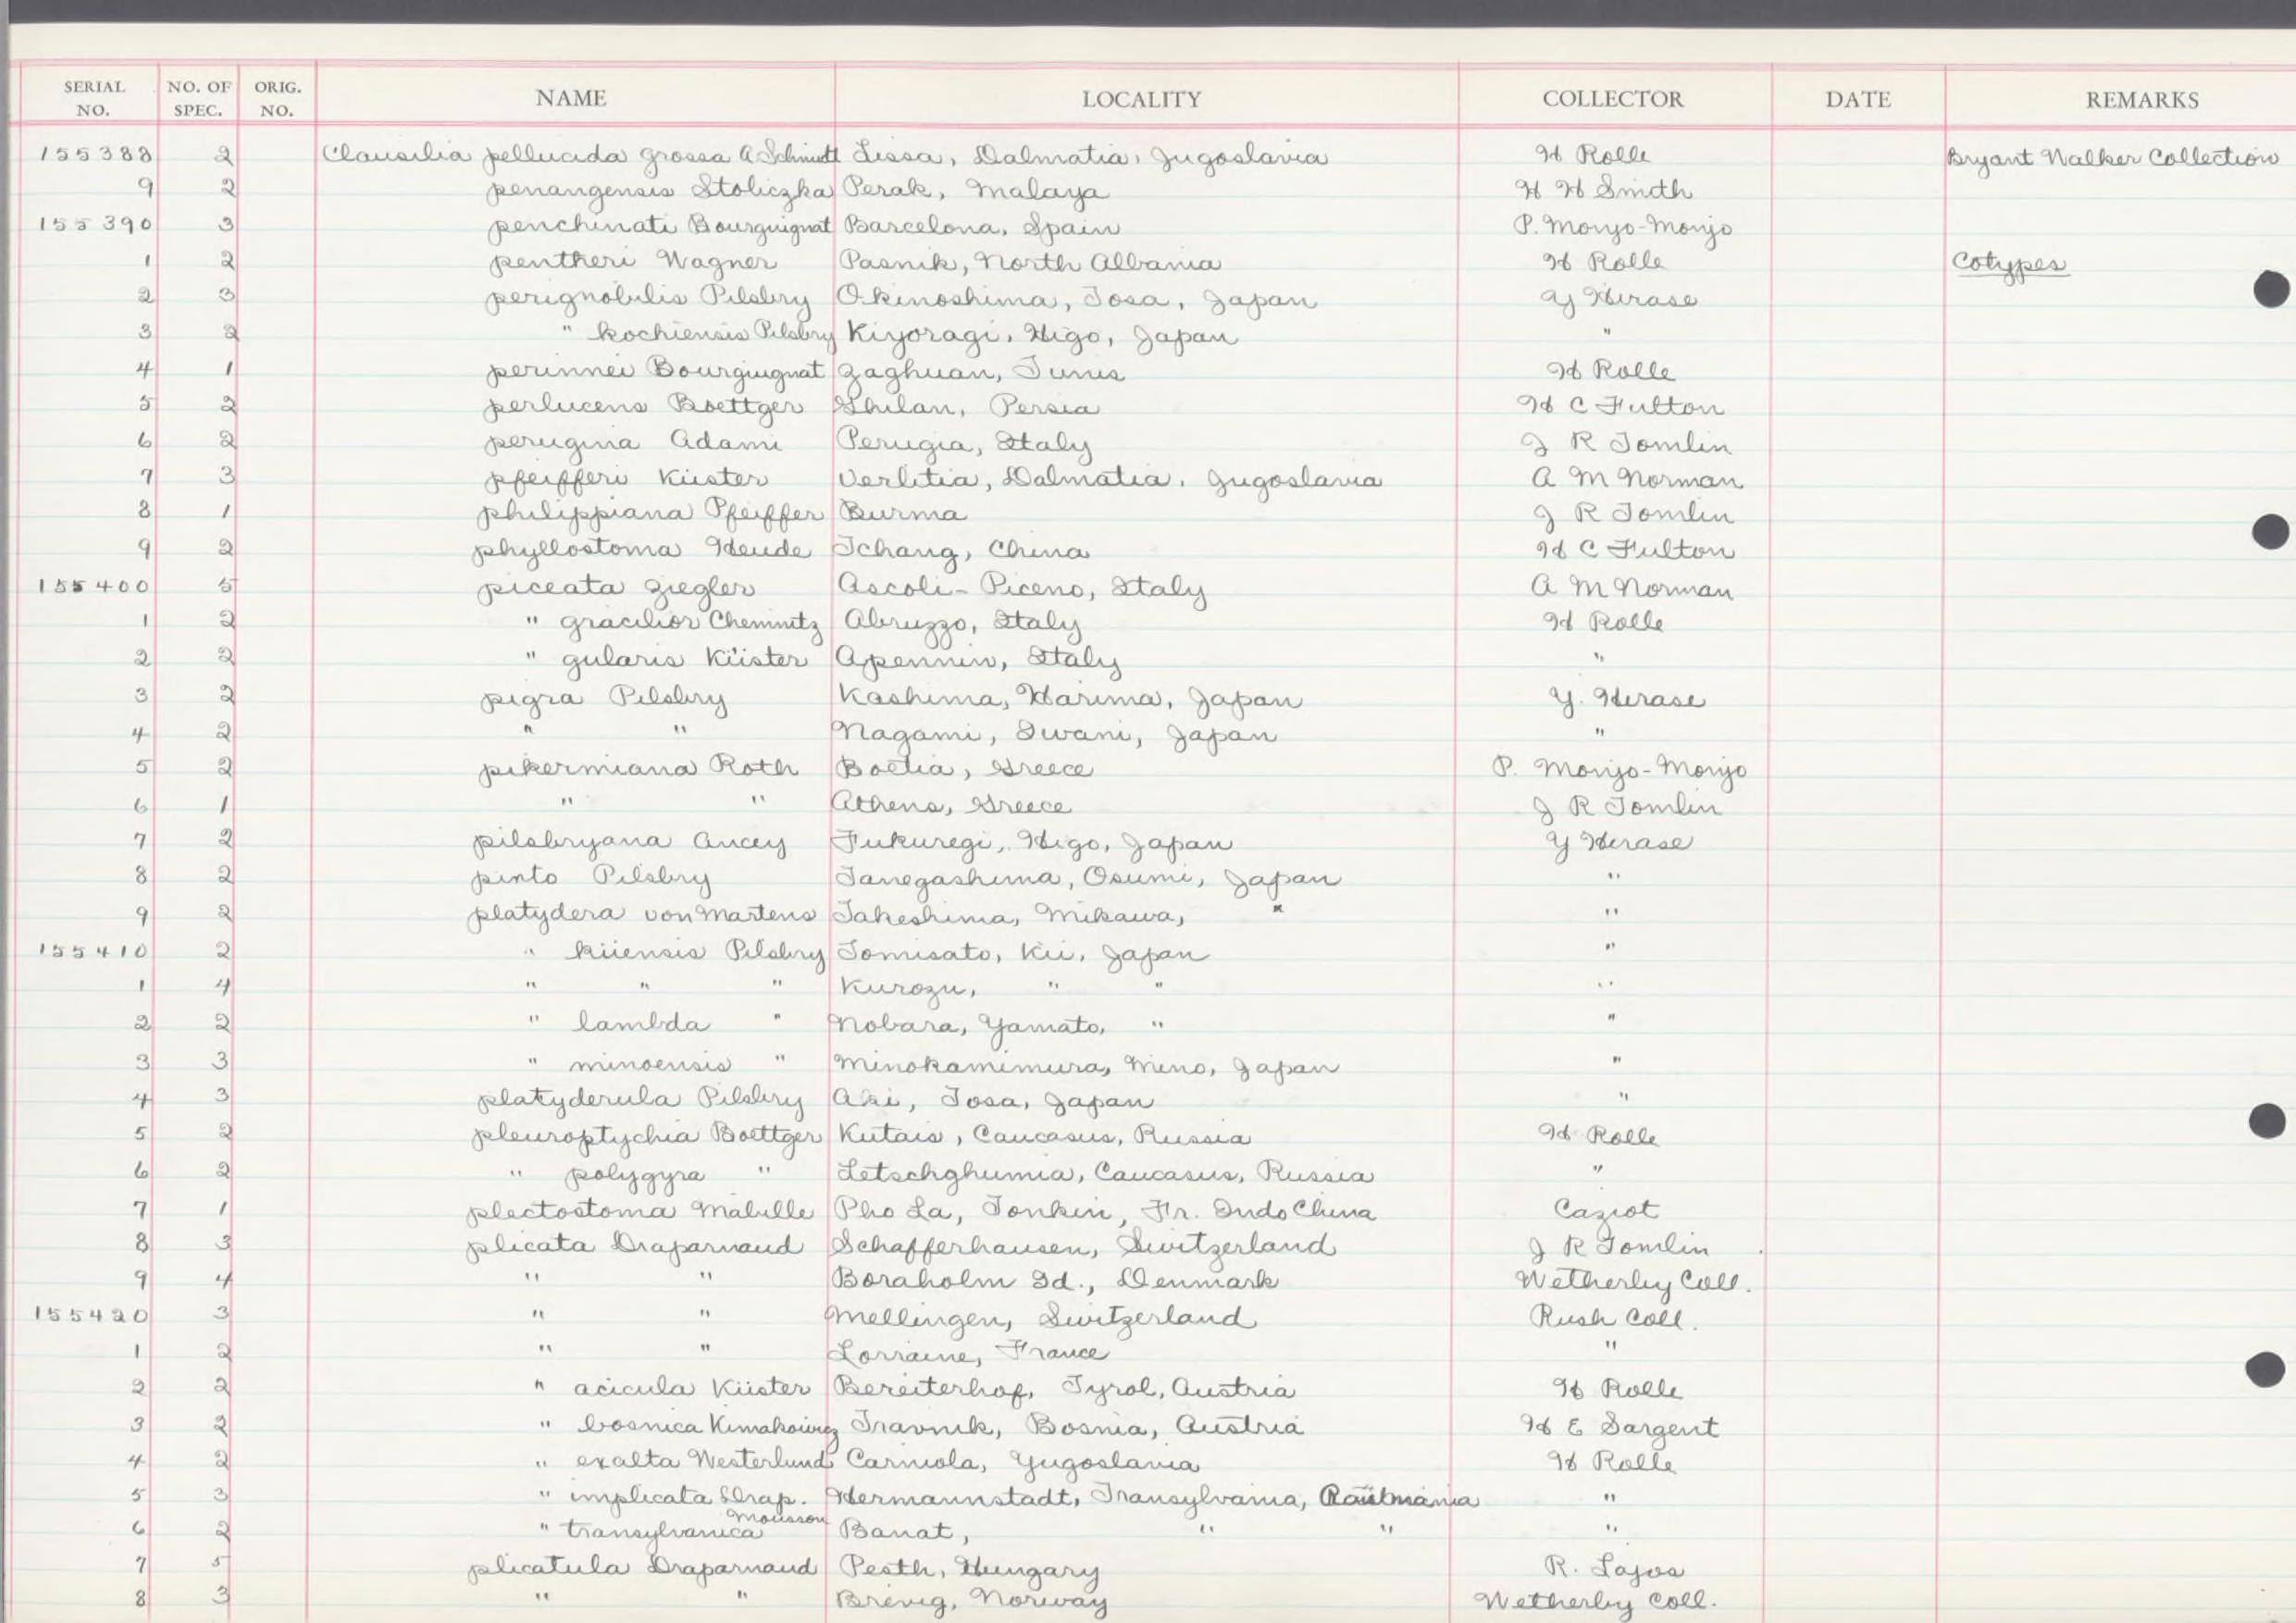 SERIAL NO. NO. OF SPEC. ORIG. NO. NAME LOCALITY COLLECTOR DATE REMARKS
155388 2 Clausilia pellucida grossa A Schmidt Lissa, Dalmatia, Jugoslavia H Rolle Bryant Walker Collection
9 2 penangensis Stoliczka Perak, Malaya H H Smith
155390 3 penchinati Bourguignat Barcelona, Spain P. Monjo-Monjo
1 2 pentheri Wagner Pasnik, North Albania H Rolle Cotypes
2 3 perignobilis Pilsbry Okinoshima, Tosa, Japan Y Hirase
3 2 " kochiensis Pilsbry Kiyoragi, Higo, Japan "
4 1 perinnei Bourguignat Zaghuan, Tunis H Rolle
5 2 perlucens Boettger Ghilan, Persia H C Fulton
6 2 perugina Adami Perugia, Italy J R Tomlin
7 3 pfeifferi Küster Verlitia, Dalmatia, Jugoslavia A M Norman
8 1 philippiana Pfeiffer Burma J R Tomlin
9 2 phyllostoma Heude Ichang, China H C Fulton
155400 5 piceata Ziegler Ascoli-Piceno, Italy A M Norman
1 2 " gracilior Chemnitz Abruzzo, Italy H Rolle
2 2 " gularis Küster Apennin, Italy "
3 2 pigra Pilsbry Kashima, Harima, Japan Y. Hirase
4 2 " " Nagami, Iwani, Japan "
5 2 pikermiana Roth Boetia, Greece P. Monjo-Monjo
6 1 " " Athens, Greece J R Tomlin
7 2 pilsbryana Ancey Fukuregi, Higo, Japan Y Hirase
8 2 pinto Pilsbry Tanegashima, Osumi, Japan "
9 2 platydera von Martens Takeshima, Mikawa, " "
155410 2 " kiiensis Pilsbry Tomisato, Kii, Japan "
1 4 " " " Kurozu, " " "
2 2 " lambda " Nobara, Yamato, " "
3 3 " minoensis " Minokamimura, Mino, Japan "
4 3 platyderula Pilsbry Aki, Tosa, Japan "
5 2 pleuroptychia Boettger Kutais, Caucasus, Russia H Rolle
6 2 " polygyra " Letschghumia, Caucasus, Russia "
7 1 plectostoma Mabille Pho La, Tonkin, Fr. Indo China Caziot
8 3 plicata Draparnaud Schafferhausen, Switzerland J R Tomlin
9 4 " " Boraholm Id., Denmark Wetherby Coll.
155420 3 " " Mellingen, Switzerland Rush Coll.
1 2 " " Lorraine, France "
2 2 " acicula Küster Bereiterhof, Tyrol, Austria H Rolle
3 2 " bosnica Kimakowicz Travnik, Bosnia, Austria H E Sargent
4 2 " exalta Westerlund Carniola, Yugoslavia H Rolle
5 3 " implicata Drap. Hermannstadt, Transylvania, "
6 2 " transylvanica Mousson Banat, " " "
7 5 plicatula Draparnaud Pesth, Hungary R. Lajos
8 3 " " Brevig, Norway Wetherby Coll.